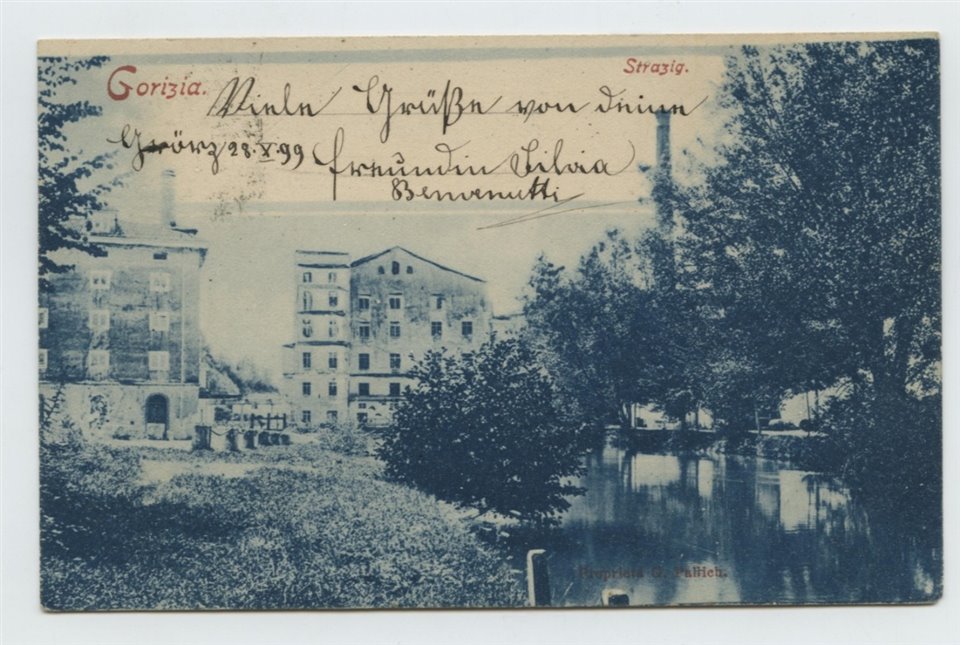 Gorizia.
Strazig.
Viele Grüße von deine
Görz 28. X. 99
freundin Silvia
Benvenutti
Proprietà G. Pallich.